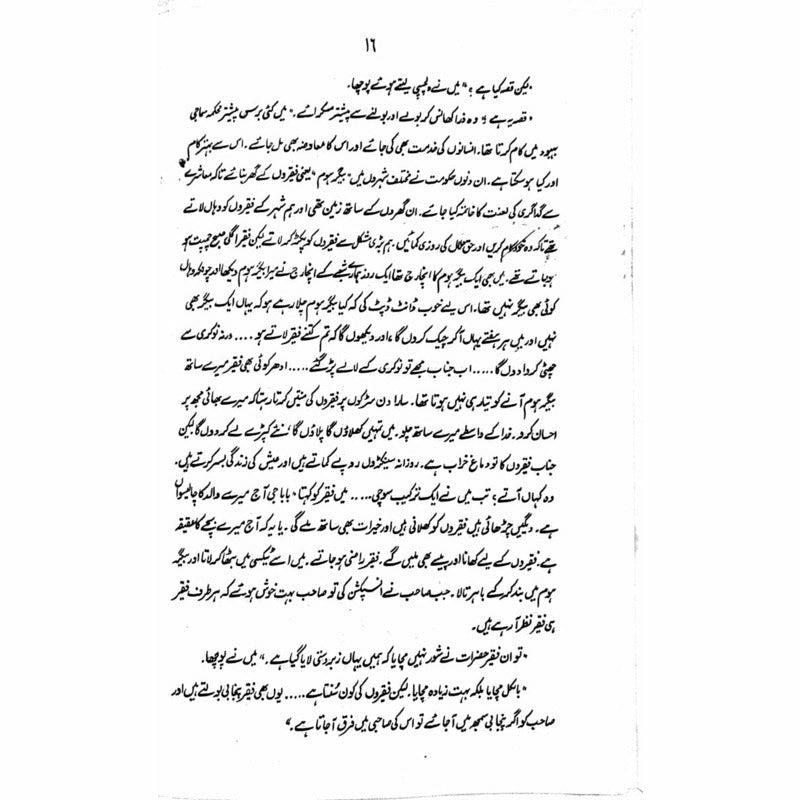 ۱۶
"لیکن قصہ کیا ہے؟" میں نے دلچسپی لیتے ہوئے پوچھا۔
"قصہ یہ ہے؛ وہ ذرا کھانس کر بولے اور بولنے سے پیشتر مسکرائے۔ "میں کئی برس پیشتر محکمہ سماجی
بہبود میں کام کرتا تھا۔ انسانوں کی خدمت بھی کی جائے اور اس کا معاوضہ بھی مل جائے۔ اس سے بہتر کام
اور کیا ہو سکتا ہے۔ ان دنوں حکومت نے مختلف شہروں میں "بیگر ہوم" یعنی فقیروں کے گھر بنائے تاکہ معاشرے
سے گداگری کی لعنت کا خاتمہ کیا جائے۔ ان گھروں کے ساتھ زمین تھی اور ہم شہر کے فقیروں کو وہاں لاتے
تھے تاکہ وہ کچھ کام کریں اور حق حلال کی روزی کمائیں۔ ہم بڑی مشکل سے فقیروں کو پکڑ کر لاتے لیکن فقیر اگلی صبح چمپت ہو
ہو جاتے تھے۔ میں بھی ایک بیگر ہوم کا انچارج تھا ایک روز ہمارے شعبے کے انچارج نے میرا بیگر ہوم دیکھا اور چونکہ وہاں
کوئی بھی بیگر نہیں تھا۔ اس لیے خوب ڈانٹ ڈپٹ کی کہ کیا بیگر ہوم چلا رہے ہو کہ یہاں ایک بیگر بھی
نہیں اور میں ہر ہفتے یہاں آ کر چیک کروں گا، اور دیکھوں گا کہ تم کتنے فقیر لاتے ہو .... ورنہ نوکری سے
چھٹی کروا دوں گا ..... اب جناب مجھے تو نوکری کے لالے پڑ گئے ..... ادھر کوئی بھی فقیر میرے ساتھ
بیگر ہوم آنے کو تیار ہی نہیں ہوتا تھا۔ سارا دن سڑکوں پر فقیروں کی منتیں کرتا رہتا کہ میرے بھائی مجھ پر
احسان کرو۔ خدا کے واسطے میرے ساتھ چلو۔ میں تمہیں کھلاؤں گا پلاؤں گا، نئے کپڑے لے کر دوں گا لیکن
جناب فقیروں کا تو دماغ خراب ہے۔ روزانہ سینکڑوں روپے کماتے ہیں اور عیش کی زندگی بسر کرتے ہیں۔
وہ کہاں آتے؛ تب میں نے ایک ترکیب سوچی .... میں فقیر کو کہتا "بابا جی آج میرے والد کا چالیسواں
ہے۔ دیگیں چڑھائی ہیں فقیروں کو کھلانی ہیں اور خیرات بھی ساتھ ملے گی۔ یا یہ کہ آج میرے بچے کا عقیقہ
ہے۔ فقیروں کے لیے کھانا اور پیسے بھی ملیں گے۔ فقیر راضی ہو جاتے۔ میں اسے ٹیکسی میں بٹھا کر لاتا اور بیگر
ہوم میں بند کر کے باہر تالا۔ جب صاحب نے انسپکشن کی تو صاحب بہت خوش ہوئے کہ ہر طرف فقیر
ہی فقیر نظر آ رہے ہیں۔
"تو ان فقیر حضرات نے شور نہیں مچایا کہ ہمیں یہاں زبردستی لایا گیا ہے۔" میں نے پوچھا۔
"بالکل مچایا بلکہ بہت زیادہ مچایا۔ لیکن فقیروں کی کون سُنتا ہے ..... یوں بھی فقیر پنجابی بولتے ہیں اور
صاحب کو اگر پنجابی سمجھ میں آ جائے تو اس کی صاحبی میں فرق آ جاتا ہے۔"